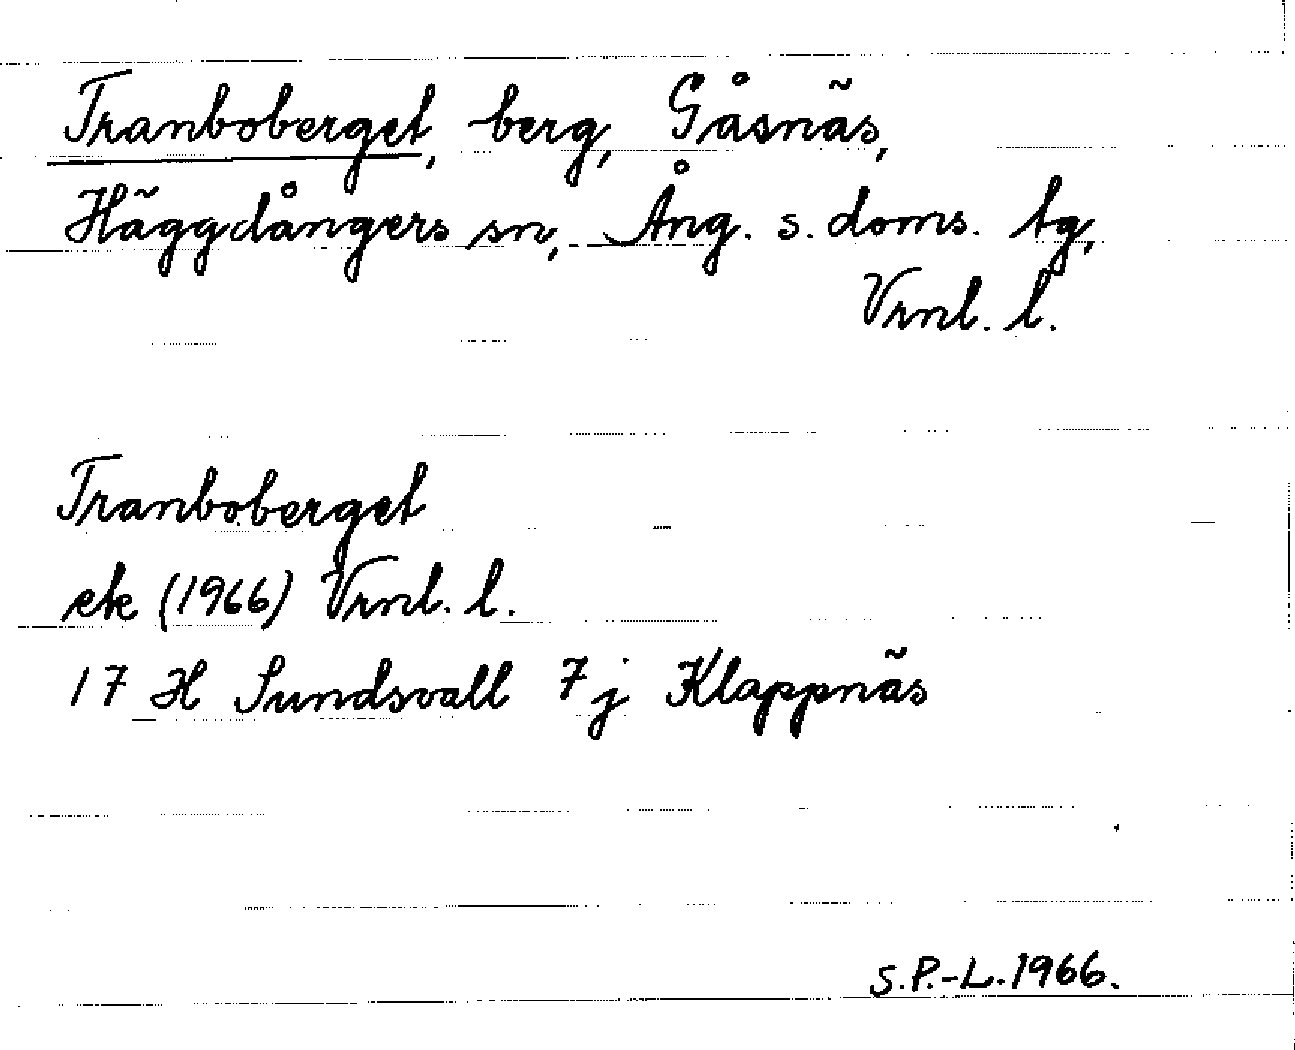 Tranboberget, berg, Gåsnäs,
Häggdångers sn, Ång. s. doms. tg,
Vrnl. l.
Tranboberget
ek (1966) Vrnl. l.
17 H Sundsvall 7j Klappnäs
S.P.-L. 1966.